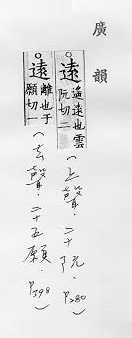 廣韻
○遠遙遠也雲阮切二(上聲．二十阮．P280)
○遠離也于願切一(去聲．二十五願．P398)